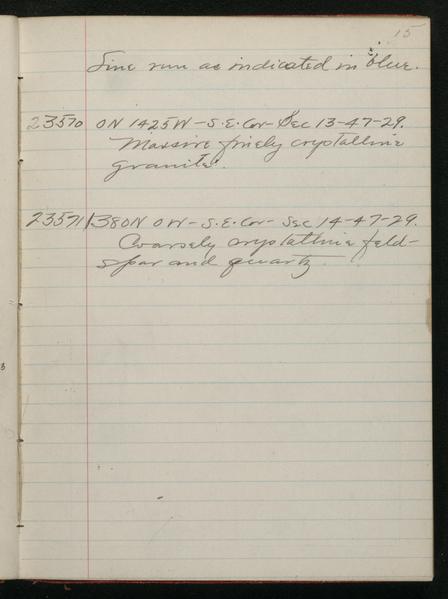 15
Line run as indicated in blue.
23570 0N 1425W-S.E. Cor- Sec 13-47-29.
Massive finely crystalline
granite.
23571 1380N 0W-S.E. Cor- Sec 14-47-29.
Coarsely crystalline feld-
spar and quartz.